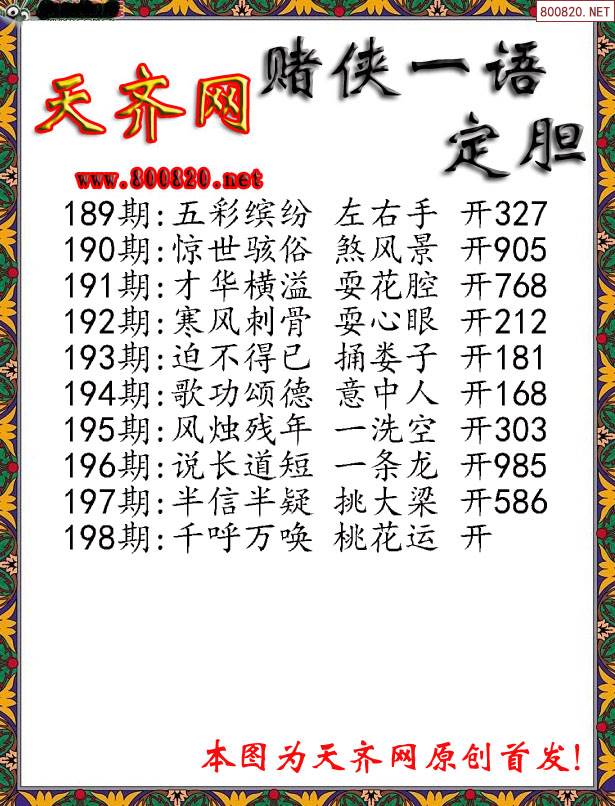 800820.NET
天齐网
赌侠一语
定胆
www.800820.net
189期:五彩缤纷 左右手 开327
190期:惊世骇俗 煞风景 开905
191期:才华横溢 耍花腔 开768
192期:寒风刺骨 耍心眼 开212
193期:迫不得已 捅娄子 开181
194期:歌功颂德 意中人 开168
195期:风烛残年 一洗空 开303
196期:说长道短 一条龙 开985
197期:半信半疑 挑大梁 开586
198期:千呼万唤 桃花运 开
本图为天齐网原创首发!